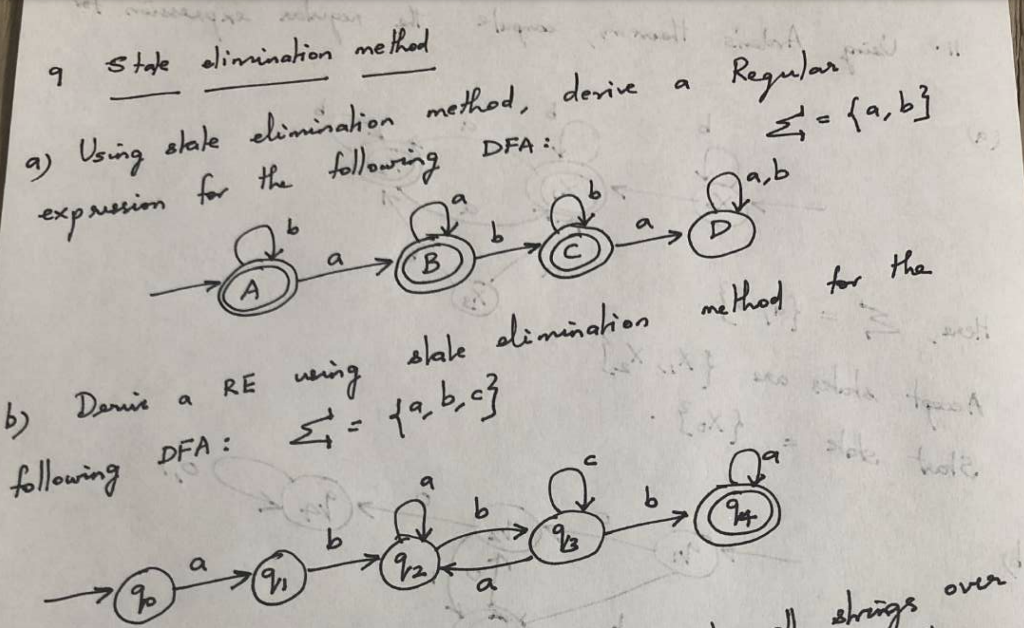 9 State elimination method
a) Using state elimination method, derive a Regular
expression for the following DFA: Σ = {a, b}
b a b a,b
A a B b C a D
b) Derive a RE using state elimination method for the
following DFA: Σ = {a, b, c}
a c a
q0 a q1 b q2 b q3 b q4
a
strings over